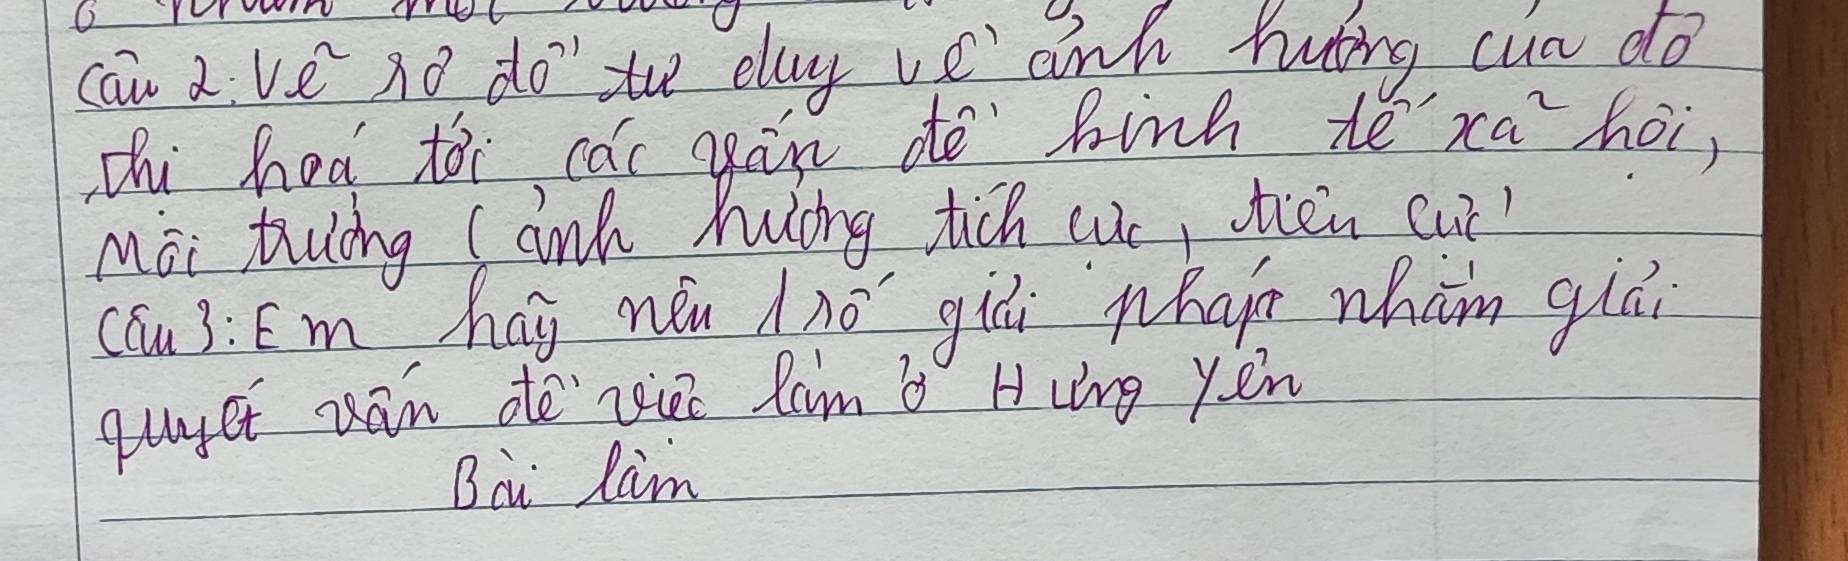 Câu 2: Vẽ sơ đồ tư duy về ảnh hưởng của đô
thi hoá tới các vấn đề kinh tế xã hội,
Môi trường ( ảnh hưởng tích cực, tiêu cực)
Câu 3: Em hãy nêu 1 số giải pháp nhằm giải
quyết vấn đề việc làm ở Hưng Yên
Bài làm